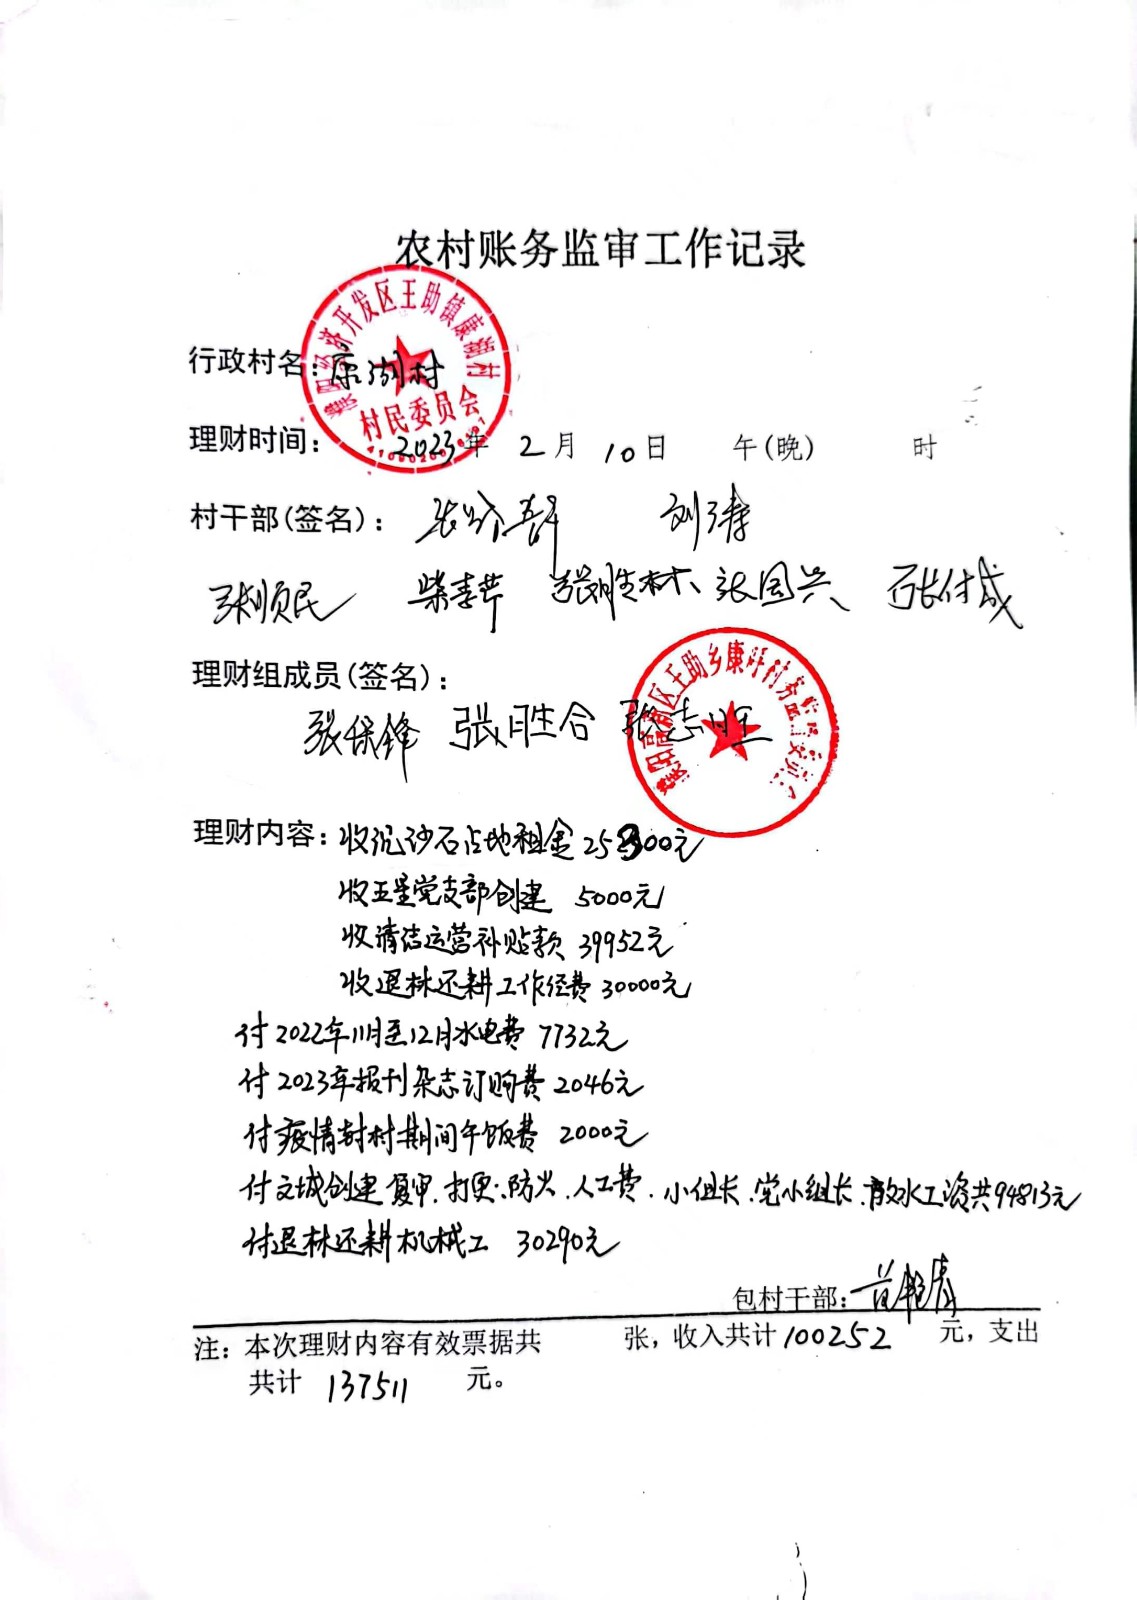 农村账务监审工作记录
濮阳经济开发区王助镇康湖村
村民委员会
行政村名：康湖村
理财时间： 2023年 2月 10日 午(晚) 时
村干部(签名)： 刘涛
张顺民 柴春芹 张胜林 张国兴 张付成
理财组成员(签名)：
张保锋 张胜合 张志旺
理财内容：收沉沙石占地租金25300元
收五星党支部创建 5000元
收清洁运营补贴款 39952元
收退林还耕工作经费 30000元
付2022年11月至12月水电费 7732元
付2023年报刊杂志订购费 2046元
付疫情封村期间午饭费 2000元
付文城创建复审、打更、防火、人工费、小组长、党小组长、散水工资共94813元
付退林还耕机械工 30290元
包村干部：
注：本次理财内容有效票据共 张，收入共计100252 元，支出
共计 137511 元。